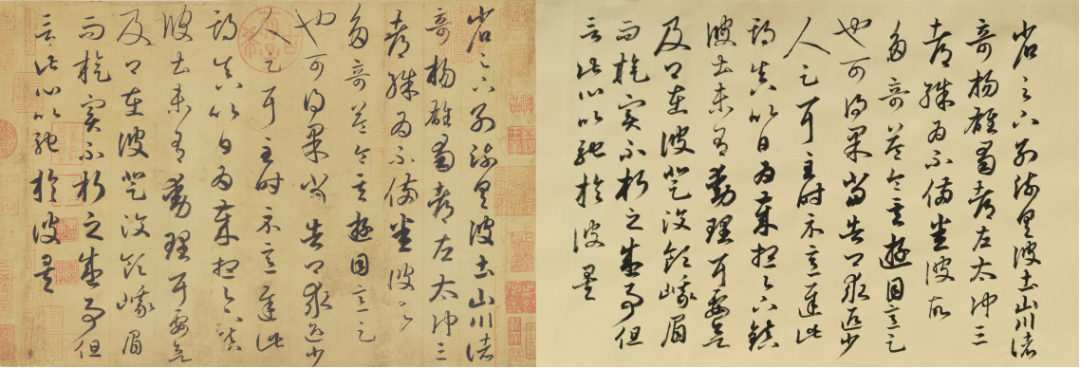 省足下別疏具彼土山川諸
奇揚雄蜀都左太沖三
都殊為不備悉彼故
多奇益令其遊目意足
也可得果當告卿求迎少
人足耳至時示意遲此
期真以日為歲想足下鎮
彼土未有動理耳要欲
及卿在彼登汶領峨眉
而旋實不朽之盛事但
言此心以馳於彼矣
省足下別疏具彼土山川諸
奇揚雄蜀都左太沖三
都殊為不備悉彼故
多奇益令其遊目意足
也可得果當告卿求迎少
人足耳至時示意遲此
期真以日為歲想足下鎮
彼土未有動理耳要欲
及卿在彼登汶領峨眉
而旋實不朽之盛事但
言此心以馳於彼矣